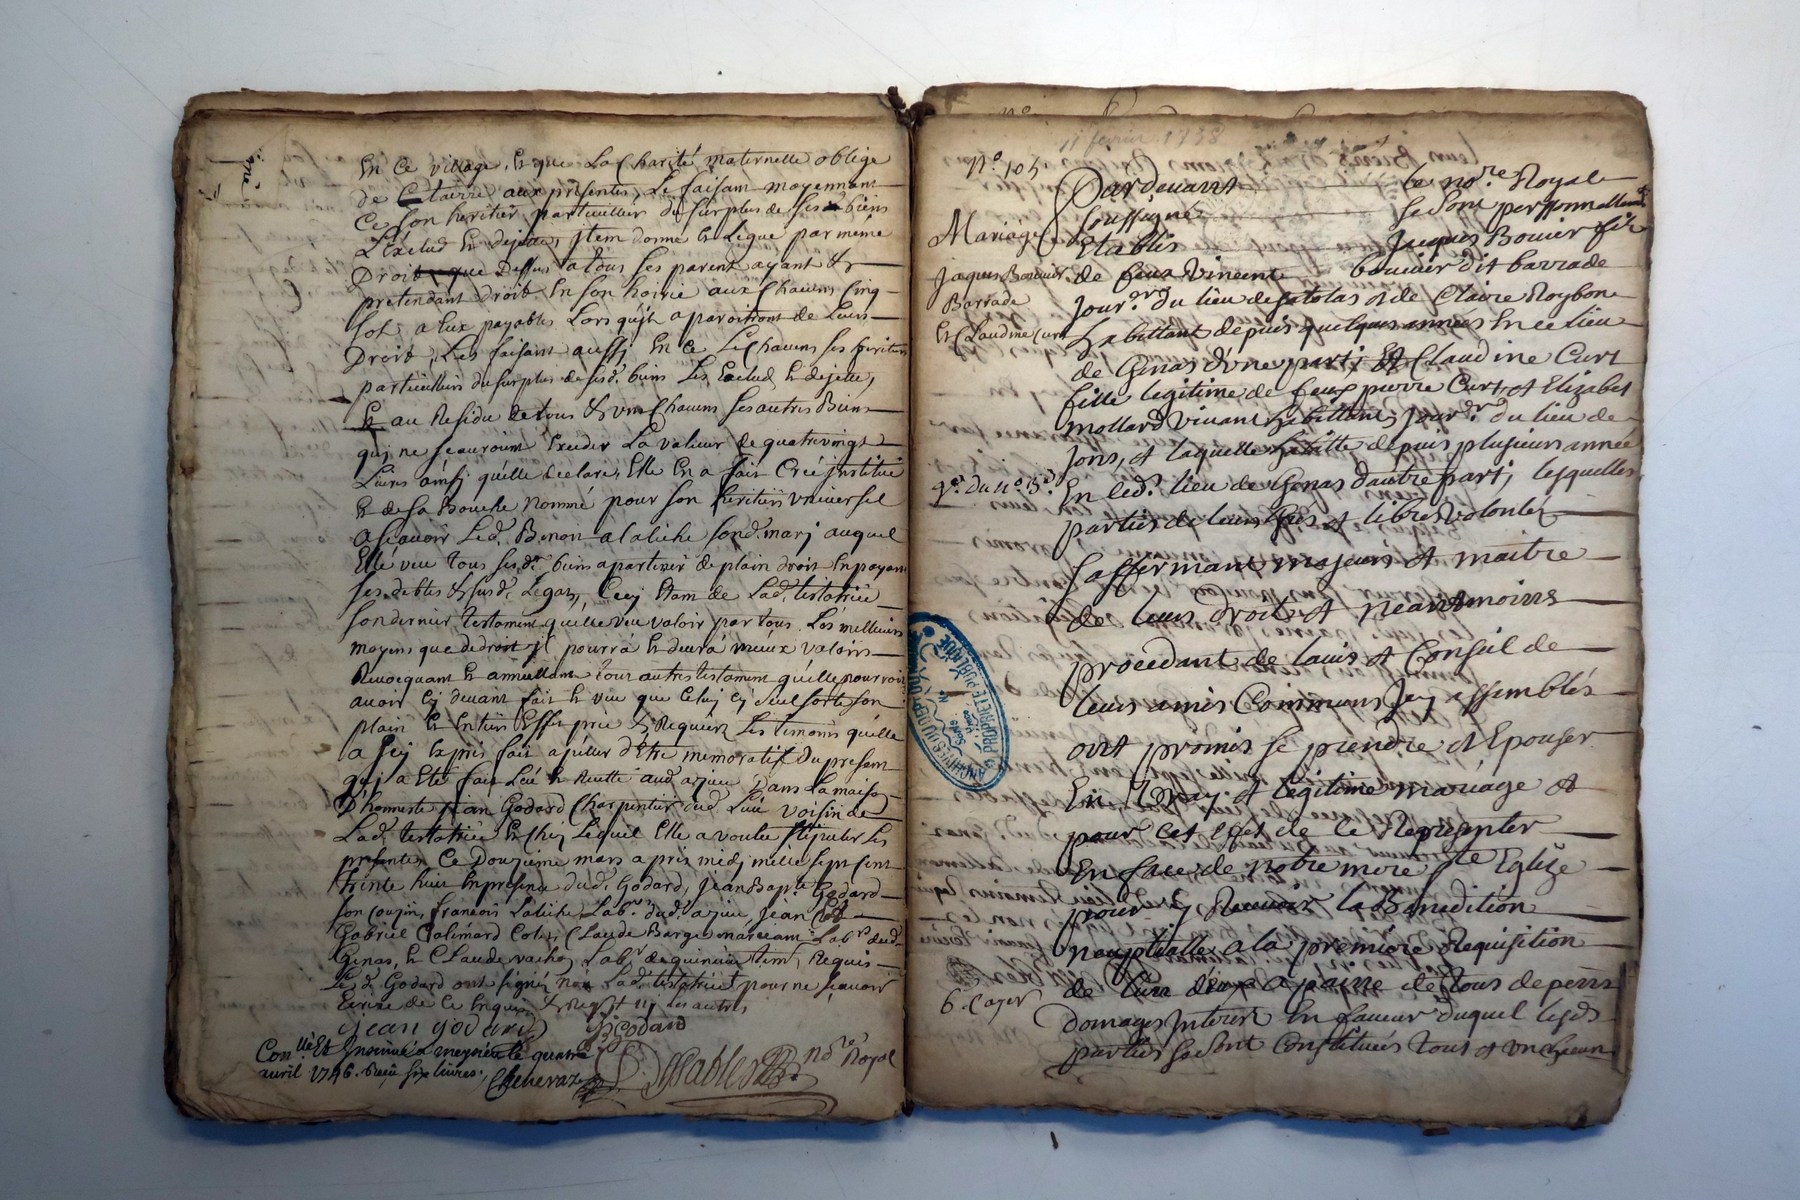 En Ce village, Et que La Charité maternelle oblige
de Claire aux presentes, Le faisant moyennant
Ce son heritier particullier du surplus de ses biens
L'Exclud Et dejette, jtem donne Et Legue par meme
Droit que Dessus a tous ses parent ayant &
pretendant droit En son hoirie aux Chacuns Cinq
sols a Eux payables Lors qu'jls aparoitront de Leurs
Droit, Les faisant aussj En ce Les Chacuns ses heritiers
particulliers du surplus de sesd. biens Les Exclud Et dejette,
Et au Residu de tous & uns Chacuns ses autres Biens
quj ne scauroient Exceder La valleur de quatrevingt
Livres ainsj qu'elle declare, Elle En a fait Créé jnstitué
Et de sa Bouche Nommé pour son heritier universel
a scavoir Led. Benoit alatiche sond. marj auquel
Elle veu tous sesd. biens apartenir de plain droit En payant
ses debtes & susd. Legats, Cecy Etant de Lad. testatrice
son dernier testament qu'elle veu valoir par tous Les meilleurs
moyens que de droit jl pourra Et devra mieux valoir
Revocquant Et annullant tout autres testament qu'elle pourroit
avoir Cy devant fait Et veu que Celuy cy seul sorte son
plain Et Entier Effet prie & Requiers Les temoins qu'elle
a Jcy Exprès fait apeller d'être memoratif du present
quj a Eté fait Leu Et Recitté aud. azieu Dans La maison
D'honneste jean Godard Charpentier dud. Lieu voisin de
Lad. testatrice Et Chez Lequel Elle a voulu stipuler Les
presentes Ce Douzieme mars apres midj mille sept cent
trente huit En presence dud. Godard, jean Bapte Godard
son Cousin, francois Latiche Labr. dud. azieu, jean
Gabriel Claude Barge marciam Labr. dud.
Genas, Et Claude vachon Labr. tem. Requis
Led. Godard ont signés non Lad. testatrice pour ne scavoir
Ecrire de ce Enquis & Requis ny Les autres
jean godard JBGodard
Conllé Et jnsinué a meyzieu le quatre
avril 1746. Receu six livres. Chenevaz
Desables Nore. Royal
11 fevrier 1738
N°. 105
Mariage
jaques Bouvier
Barrade
Et Claudine Curt
du n°. 3e.
6. Cayer
Pardevant le nore. Royal
soussigné se sont personnellemt.
Etablis Jacques Bouvier fils
de feux Vincent bouvier dit barrade
Jourer. du lieu de satolas et de Claire Roybon
habittant depuis quelques années En ce lieu
de Genas d'une part; Et Claudine Curt
fille legitime de feux pierre Curt et Elizabet
mollard vivant habittants Jourers. du lieu de
Jons, et laquelle habitte depuis plusieurs année
En led. lieu de Genas d'autre part; lesquelles
parties de leurs grés et libres volontés
s'affermant majeurs et maitre
de leurs droits et neantmoins
procedant de lavis et Conseil de
leurs amis Communs Jcy assemblés
ont promis se prendre et Epouser
En vray et legitime mariage et
pour cet effet de ce Representer
En face de notre mere ste Eglize
pour y Recevoir la Benedition
nouptialle a la premiere Requisition
de l'un d'eux a paine de tous depens
Domages Interest En faveur duquel lesds.
parties se sont Constitués tous et un chacun
ARCHIVES DU DEPT
PROPRIETE PUBLIQUE